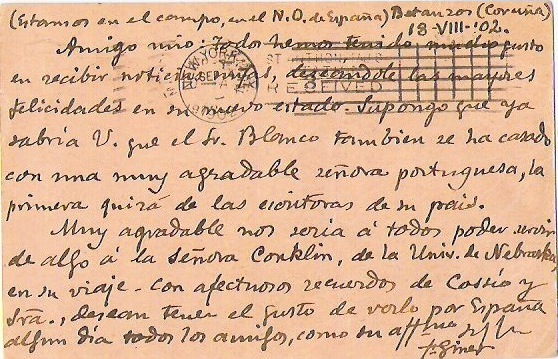 (Estamos en el campo, en el N.O. de España) Betanzos (Coruña)
18-VIII-'02.
Amigo mio: Todos hemos tenido mucho gusto
en recibir noticias suyas, deseándole las mayores
felicidades en su nuevo estado. Supongo que ya
sabría V. que el Sr. Blanco tambien se ha casado
con una muy agradable señora portuguesa, la
primera quizá de las escritoras de su pais.
Muy agradable nos seria á todos poder servir
de algo á la señora Conklin, de la Univ. de Nebraska
en su viaje. Con afectuosos recuerdos de Cossío y
Sra., desean tener el gusto de verlo por España
algun día todos los amigos, como su aff
F. Giner
NEW YORK
SEP
1902
RECEIVED